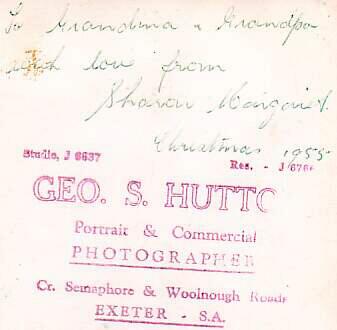 To Grandma & Grandpa
with love from
Sharon Margaret.
Christmas 1955
Studio, J 6637
Res. - J 676
GEO. S. HUTTO
Portrait & Commercial
PHOTOGRAPHER
Cr. Semaphore & Woolnough Roads
EXETER - S.A.